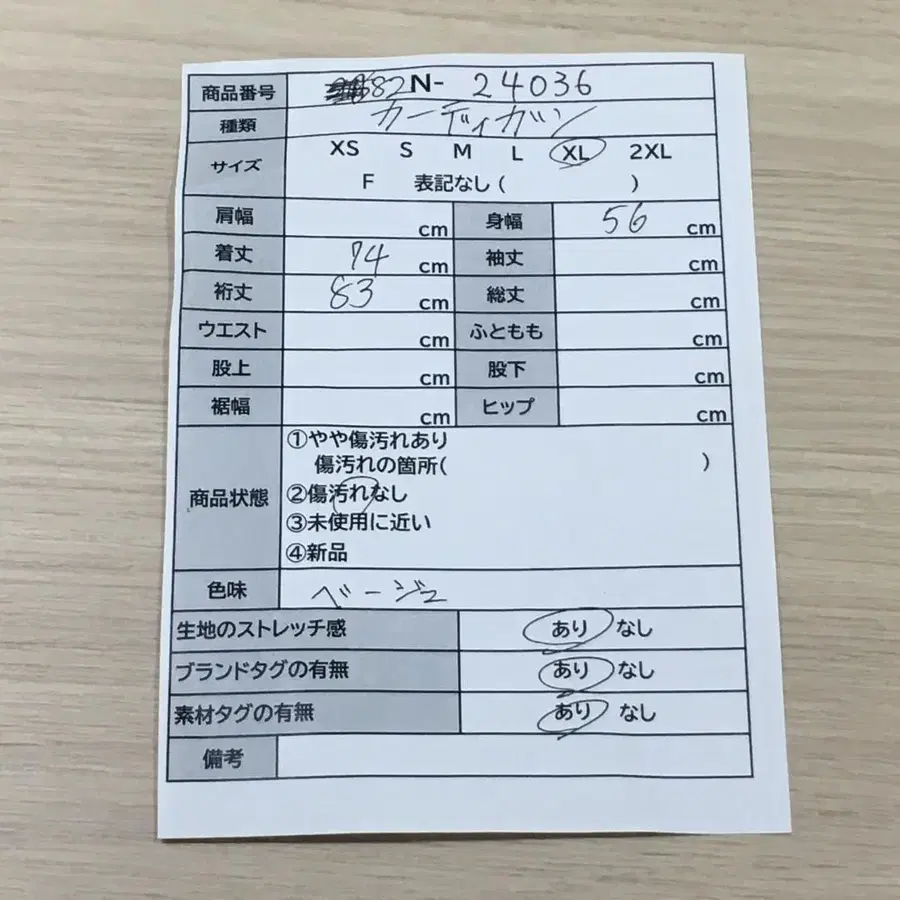 商品番号 682N- 24036
種類 カーディガン
サイズ XS S M L XL 2XL
F 表記なし ( )
肩幅 cm 身幅 56 cm
着丈 74 cm 袖丈 cm
裄丈 83 cm 総丈 cm
ウエスト cm ふともも cm
股上 cm 股下 cm
裾幅 cm ヒップ cm
商品状態 ①やや傷汚れあり
傷汚れの箇所( )
②傷汚れなし
③未使用に近い
④新品
色味 ベージュ
生地のストレッチ感 あり なし
ブランドタグの有無 あり なし
素材タグの有無 あり なし
備考